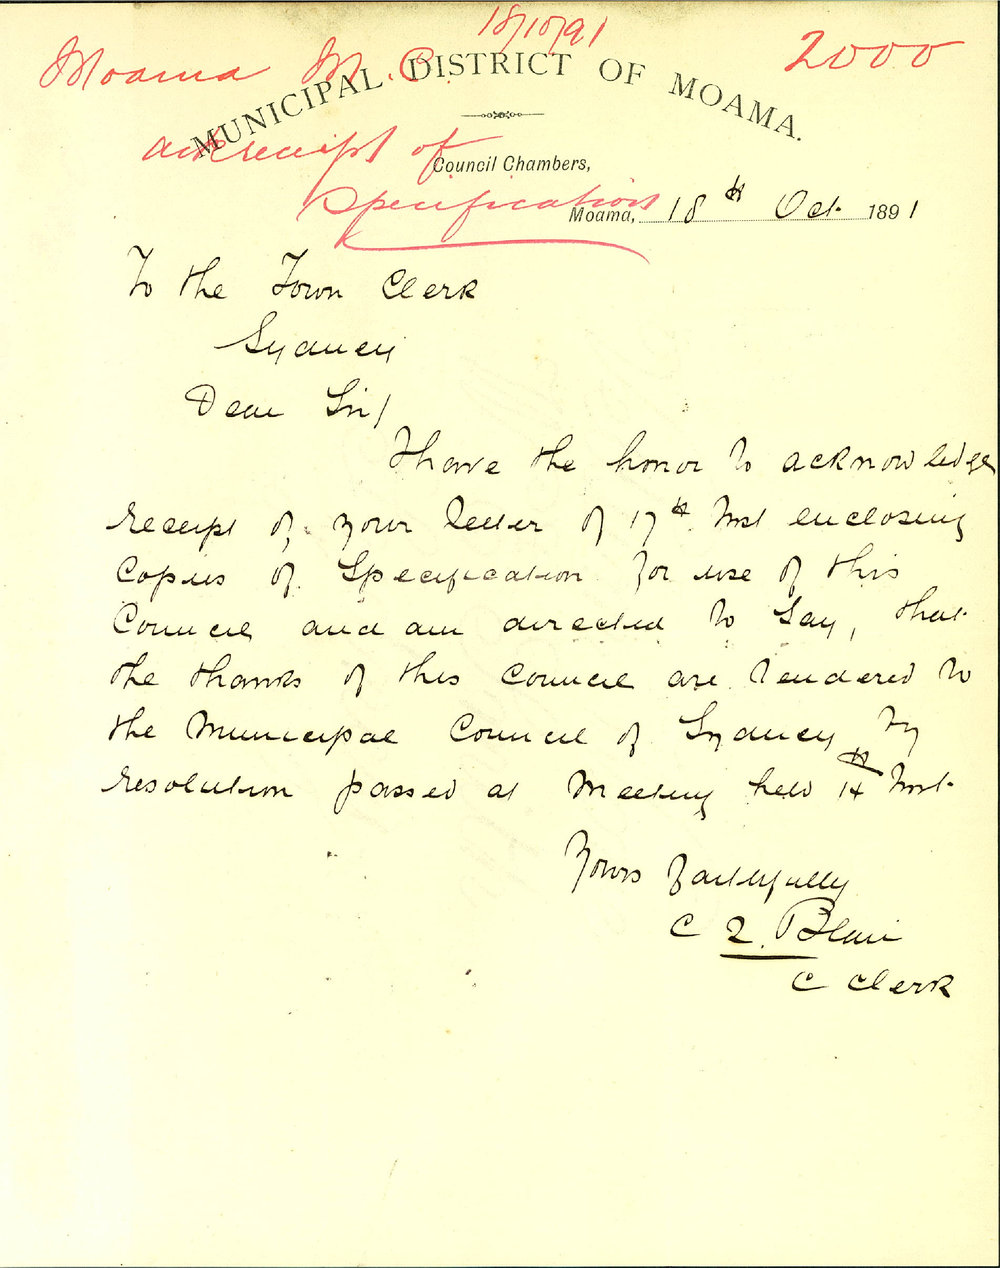 18/10/91
Moama M. C. 2000
MUNICIPAL DISTRICT OF MOAMA.
ack receipt of
Council Chambers,
Specifications
Moama, 18th Oct. 1891
To the Town Clerk
Sydney
Dear Sir/
I have the honor to acknowledge
receipt of your letter of 17th Inst enclosing
Copies of Specification for use of this
Council and am directed to Say, that
the thanks of this Council are tendered to
the Municipal Council of Sydney by
resolution passed at Meeting held Inst.
Yours faithfully
C Blair
C Clerk